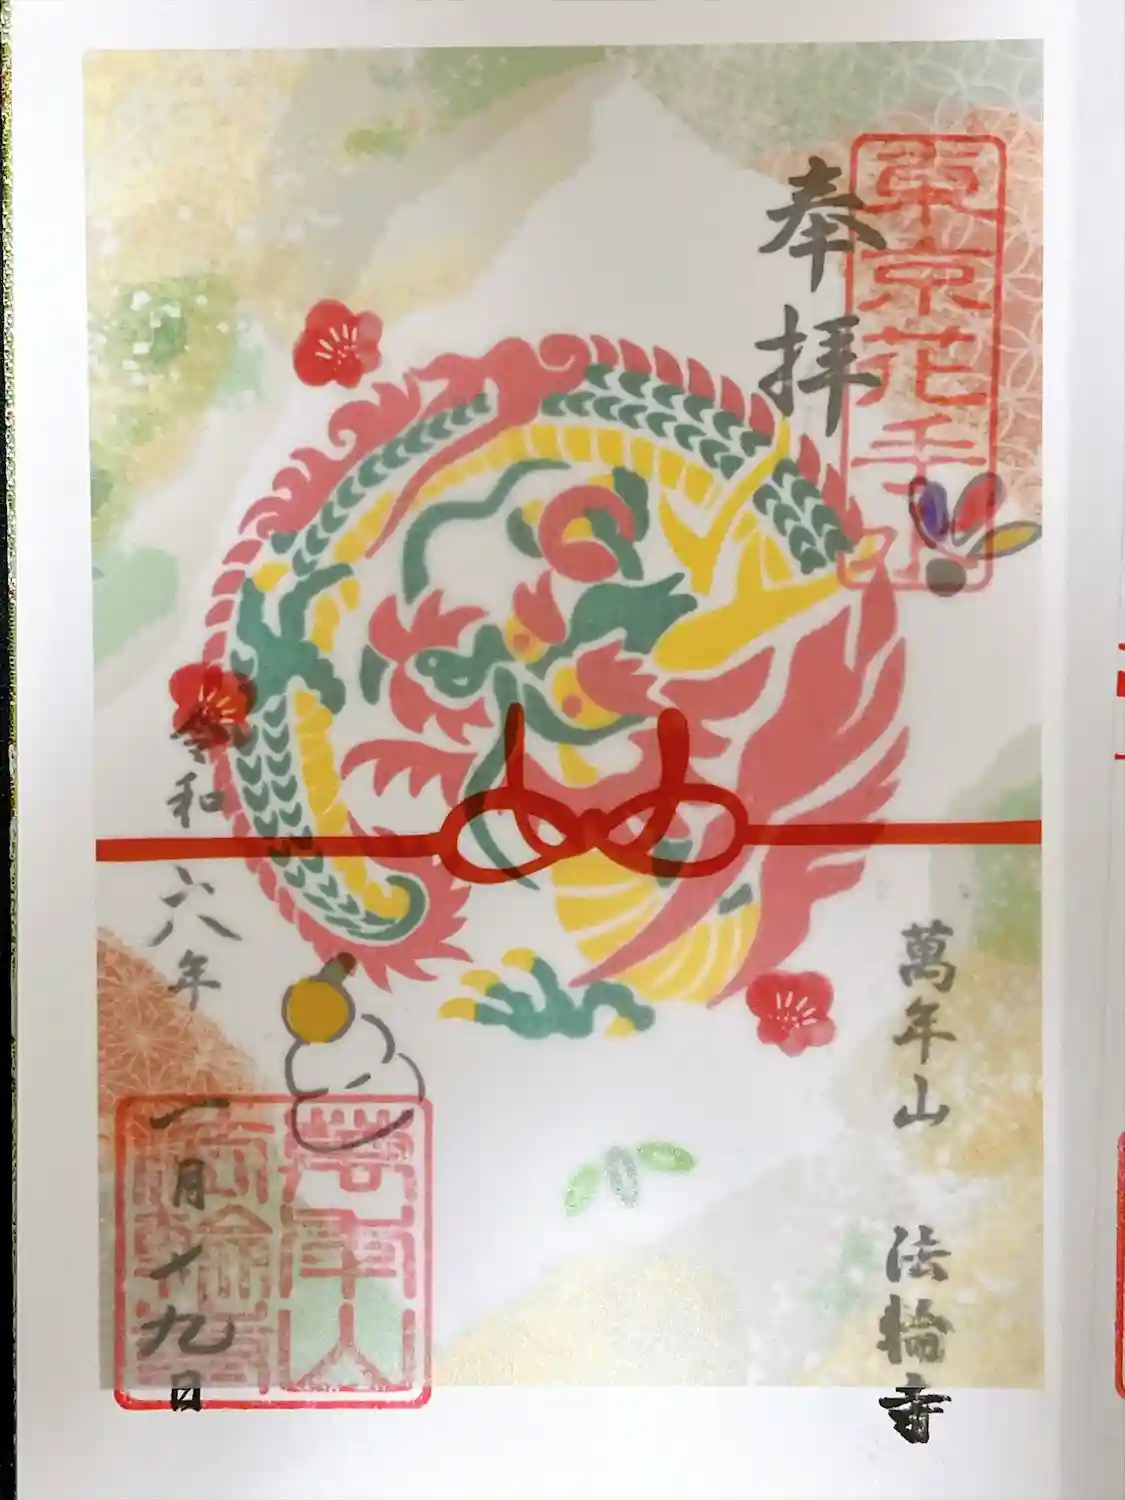 東京花手山
奉拝
萬年山 法輪寺
萬年山
法輪寺
令和六年 一月十九日